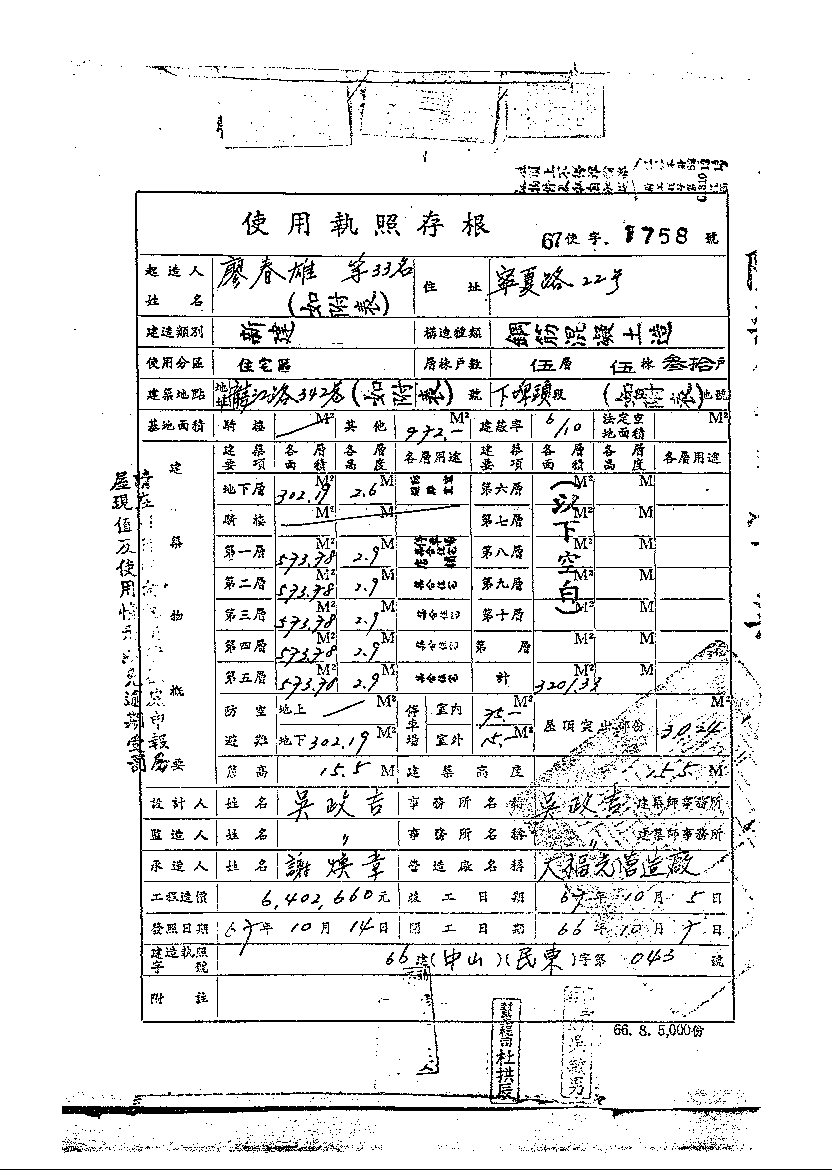 使用執照存根
67使字 1758 號
起造人姓名 廖春雄 等33名 (如附表) 住址 寧夏路22号
建造類別 新建 構造種類 鋼筋混凝土造
使用分區 住宅區 層棟戶數 伍層 伍棟 叁拾戶
建築地點 地址 龍江路342巷(如附表)號 下埤頭段 地號
基地面積 騎樓 M² 其他 972.- M² 建蔽率 6/10 法定空地面積 M²
建築物概要
建築要項 各層面積 各層高度 各層用途 建築要項 各層面積 各層高度 各層用途
地下層 302.19 M² 2.6 M 第六層 M² M
騎樓 M² M 第七層 M² M
第一層 573.78 M² 2.9 M 第八層 M² M
第二層 573.78 M² 2.9 M 第九層 M² M
第三層 573.78 M² 2.9 M 第十層 M² M
第四層 573.78 M² 2.9 M 第 層 M² M
第五層 573.78 M² 2.9 M 計 M² M
(以下空白)
防空避難 地上 M² 停車場 室內 75.- M² 屋頂突出部份 30.24 M²
地下 302.19 M² 室外 15.- M²
簷高 15.5 M 建築高度 15.5 M
設計人 姓名 吳政吉 事務所名稱 吳政吉 建築師事務所
監造人 姓名 〃 事務所名稱 〃 建築師事務所
承造人 姓名 謝煥章 營造廠名稱 大福先營造廠
工程造價 6,402,660元 竣工日期 67年10月5日
發照日期 67年10月14日 開工日期 66年10月7日
建造執照字號 66建(中山)(民東)字第043號
附註
66. 8. 5,000份
杜拱辰
吳敏男